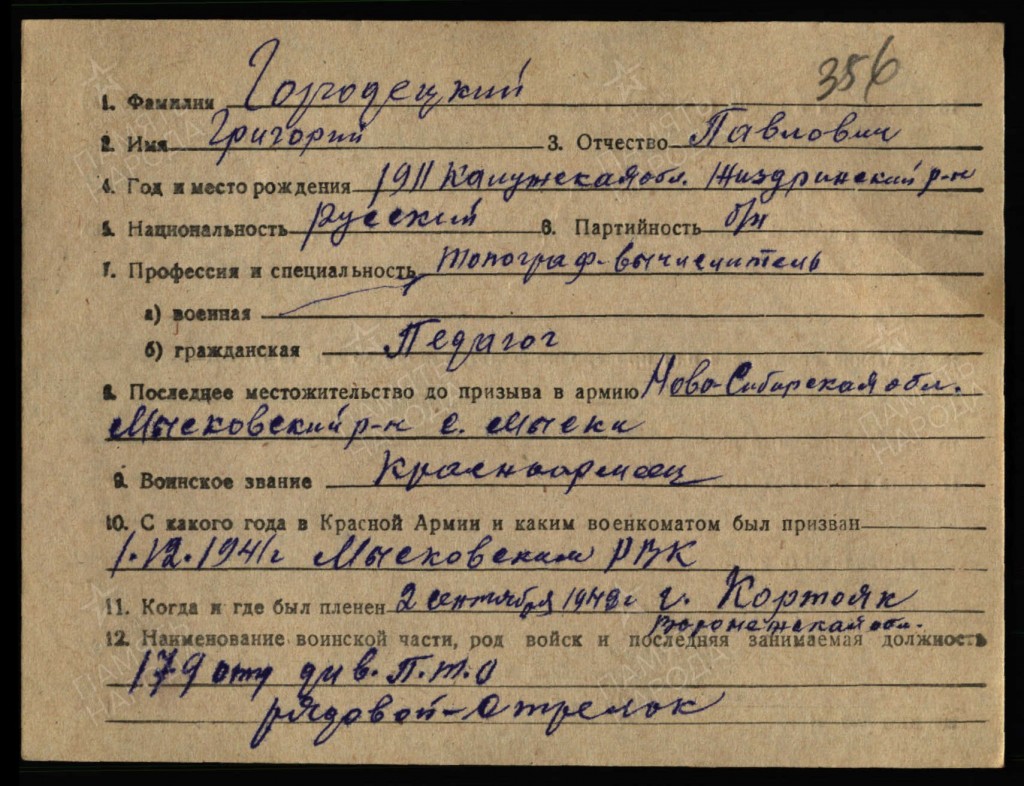 356
1. Фамилия Городецкий
2. Имя Григорий 3. Отчество Павлович
4. Год и место рождения 1911 Калужская обл. Жиздринский р-н
5. Национальность Русский 6. Партийность б/п
7. Профессия и специальность топограф-вычислитель
а) военная
б) гражданская Педагог
8. Последнее местожительство до призыва в армию Ново-Сибирская обл.
Мысковский р-н с. Мыски
9. Воинское звание Красноармеец
10. С какого года в Красной Армии и каким военкоматом был призван
1.12.1941г Мысковским РВК
11. Когда и где был пленен 2 сентября 1942г г. Кортояк
Воронежская обл.
12. Наименование воинской части, род войск и последняя занимаемая должность
179 отд див. П.т.о
рядовой-стрелок
ПАМЯТЬ НАРОДА